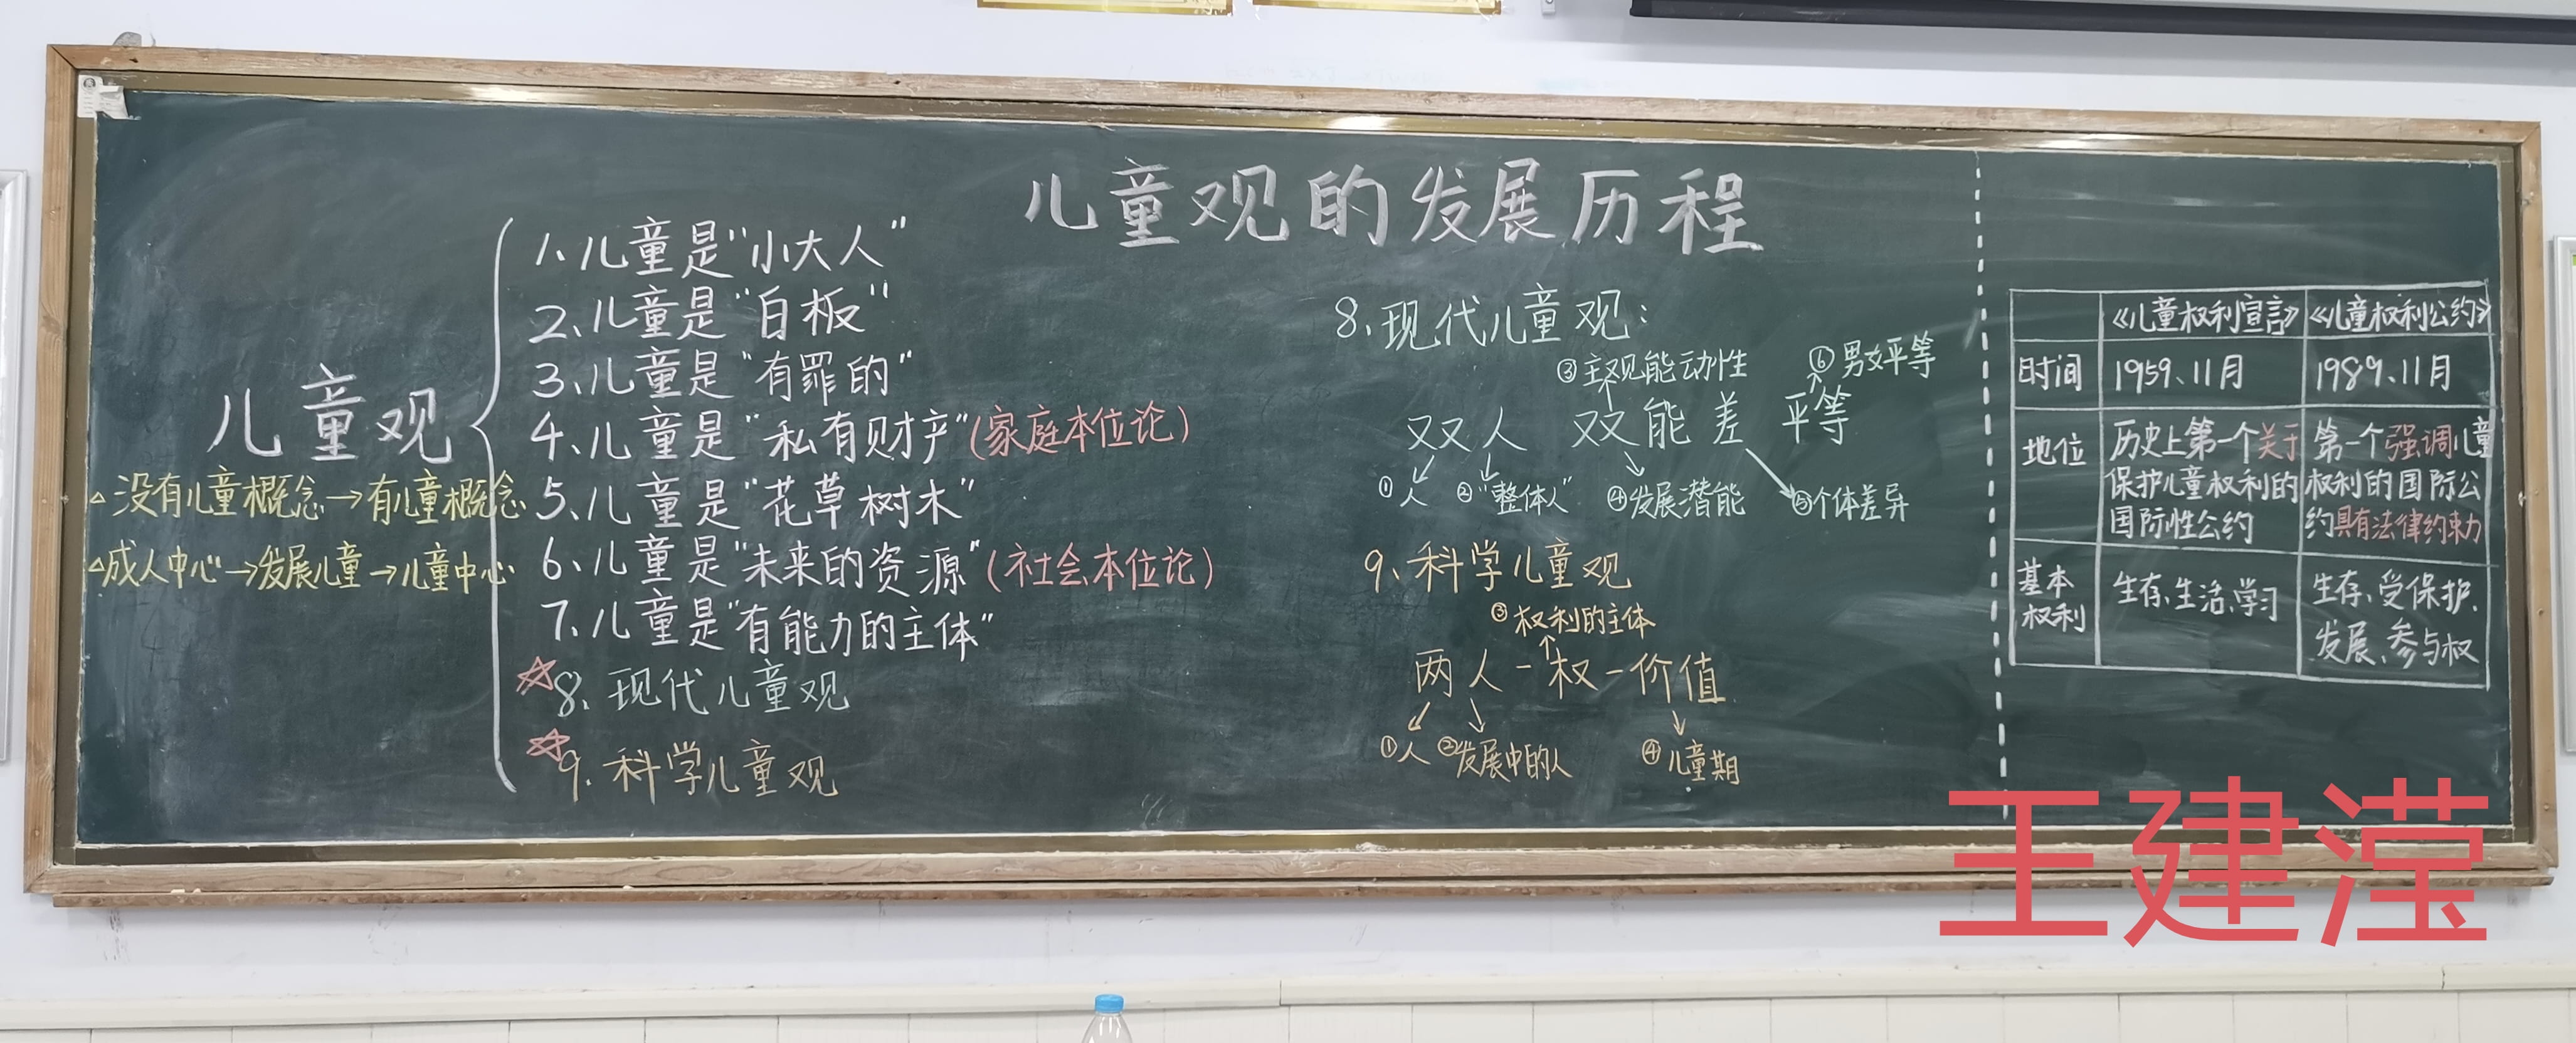 儿童观的发展历程
儿童观
△没有儿童概念→有儿童概念
△成人中心→发展儿童→儿童中心
1、儿童是“小大人”
2、儿童是“白板”
3、儿童是“有罪的”
4、儿童是“私有财产”(家庭本位论)
5、儿童是“花草树木”
6、儿童是“未来的资源”(社会本位论)
7、儿童是“有能力的主体”
☆8、现代儿童观
☆9、科学儿童观
8、现代儿童观：
③主观能动性 ⑥男女平等
双人 双能差 平等
①人 ②“整体人” ④发展潜能 ⑤个体差异
9、科学儿童观
③权利的主体
两人-权-价值
①人 ②发展中的人 ④儿童期
《儿童权利宣言》 《儿童权利公约》
时间 1959、11月 1989、11月
地位 历史上第一个关于 第一个强调儿童
保护儿童权利的 权利的国际公
国际性公约 约具有法律约束力
基本 生存、生活、学习 生存、受保护、
权利 发展、参与权
王建滢